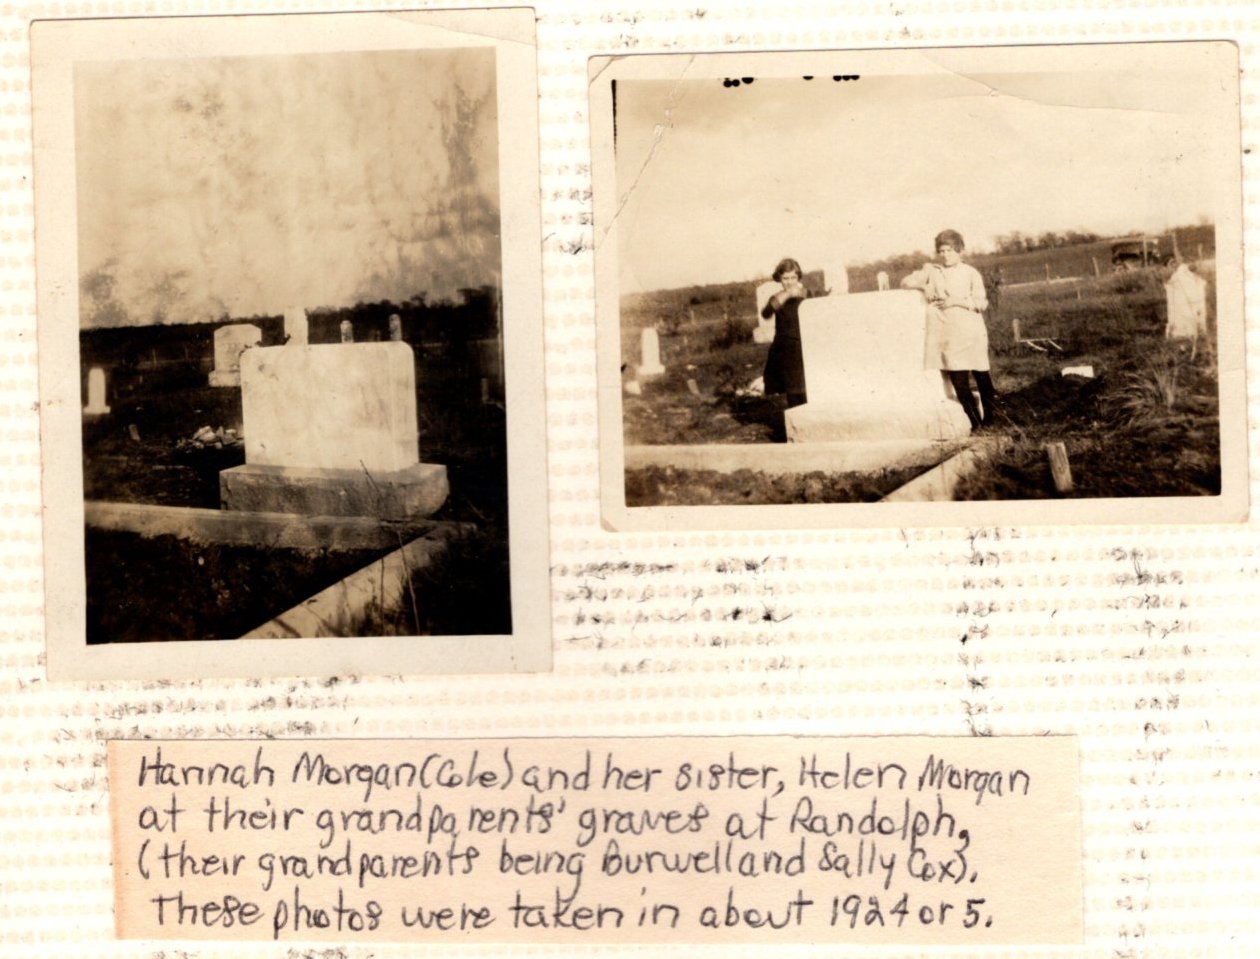 Hannah Morgan (Cole) and her sister, Helen Morgan
at their grandparents' graves at Randolph,
(their grandparents being Burwell and Sally Cox).
These photos were taken in about 1924 or 5.